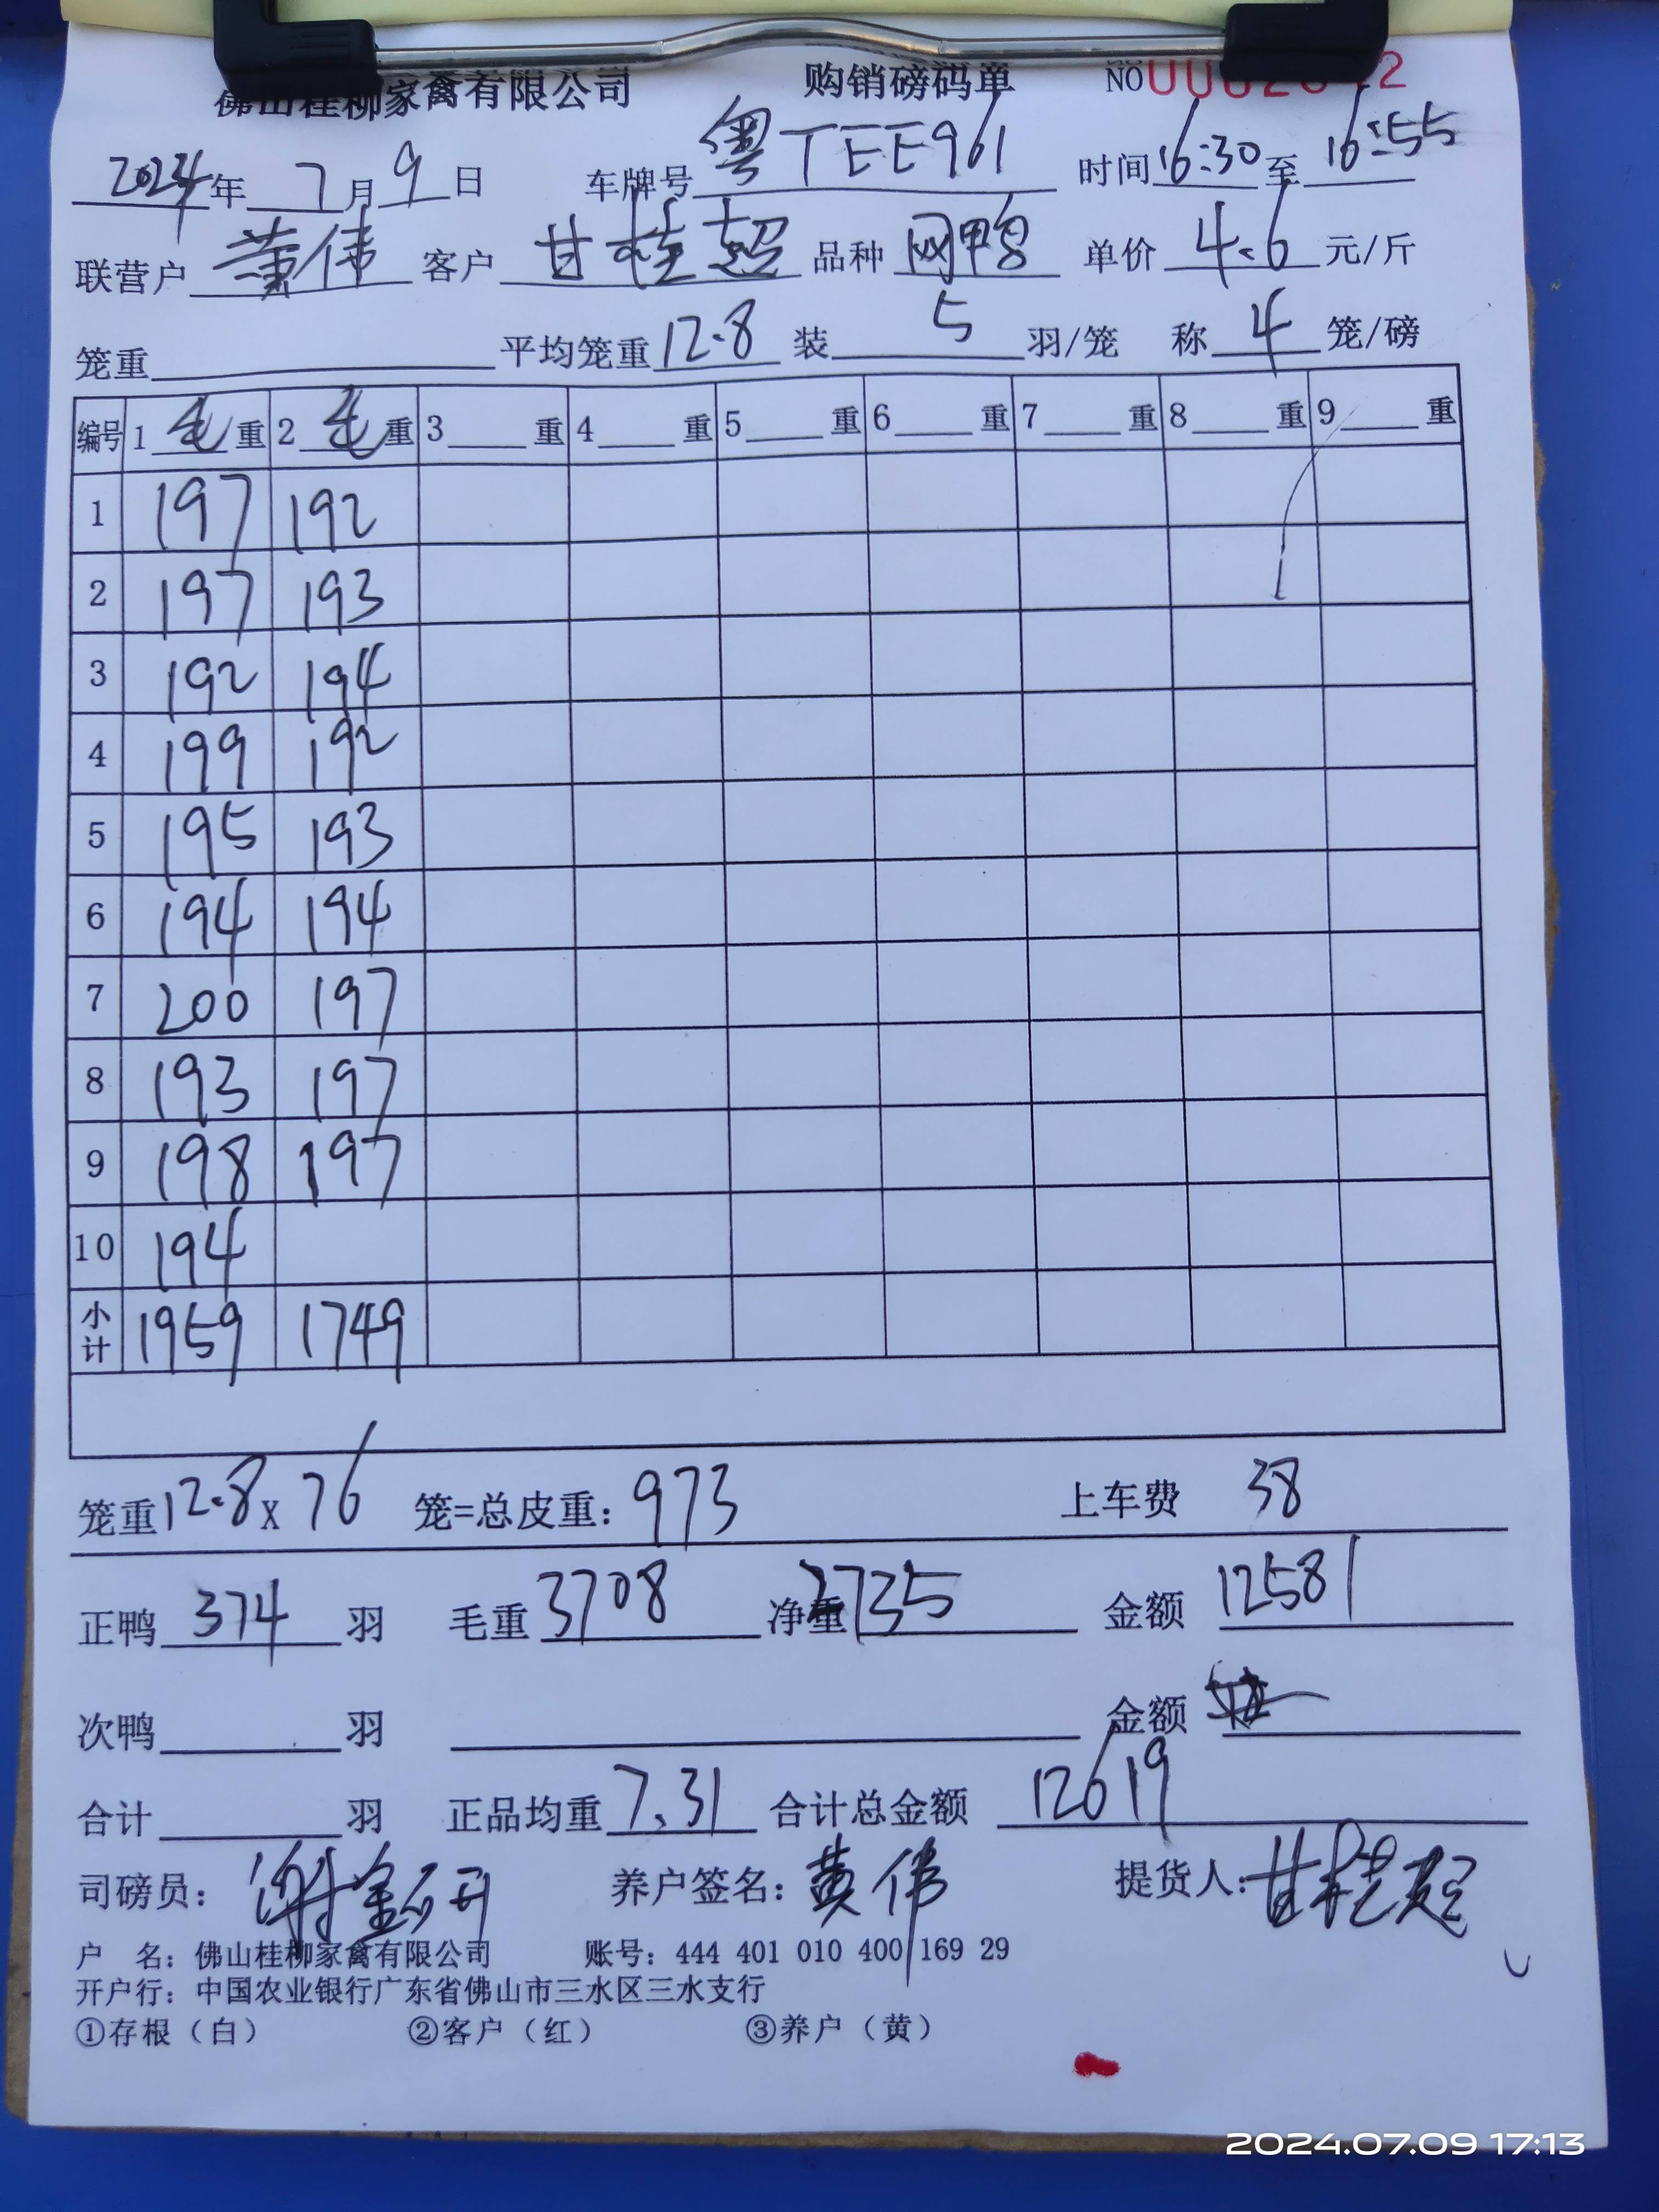 佛山桂柳家禽有限公司 购销磅码单 NO
2024年 7月 9日 车牌号 粤TEE961 时间 16:30 至 16:55
联营户 黄伟 客户 甘桂超 品种 网鸭 单价 4.6 元/斤
笼重 平均笼重 12.8 装 5 羽/笼 称 4 笼/磅
编号 1 毛 重 2 毛 重 3 重 4 重 5 重 6 重 7 重 8 重 9 重
1 197 192
2 197 193
3 192 194
4 199 192
5 195 193
6 194 194
7 200 197
8 193 197
9 198 197
10 194
小计 1959 1749
笼重 12.8 x 76 笼=总皮重: 973 上车费 38
正鸭 374 羽 毛重 3708 净重 2735 金额 12581
次鸭 羽 金额
合计 羽 正品均重 7.31 合计总金额 12619
司磅员: 养户签名: 黄伟 提货人: 甘桂超
户 名: 佛山桂柳家禽有限公司 账号: 444 401 010 400 169 29
开户行: 中国农业银行广东省佛山市三水区三水支行
①存根（白） ②客户（红） ③养户（黄）
2024.07.09 17:13